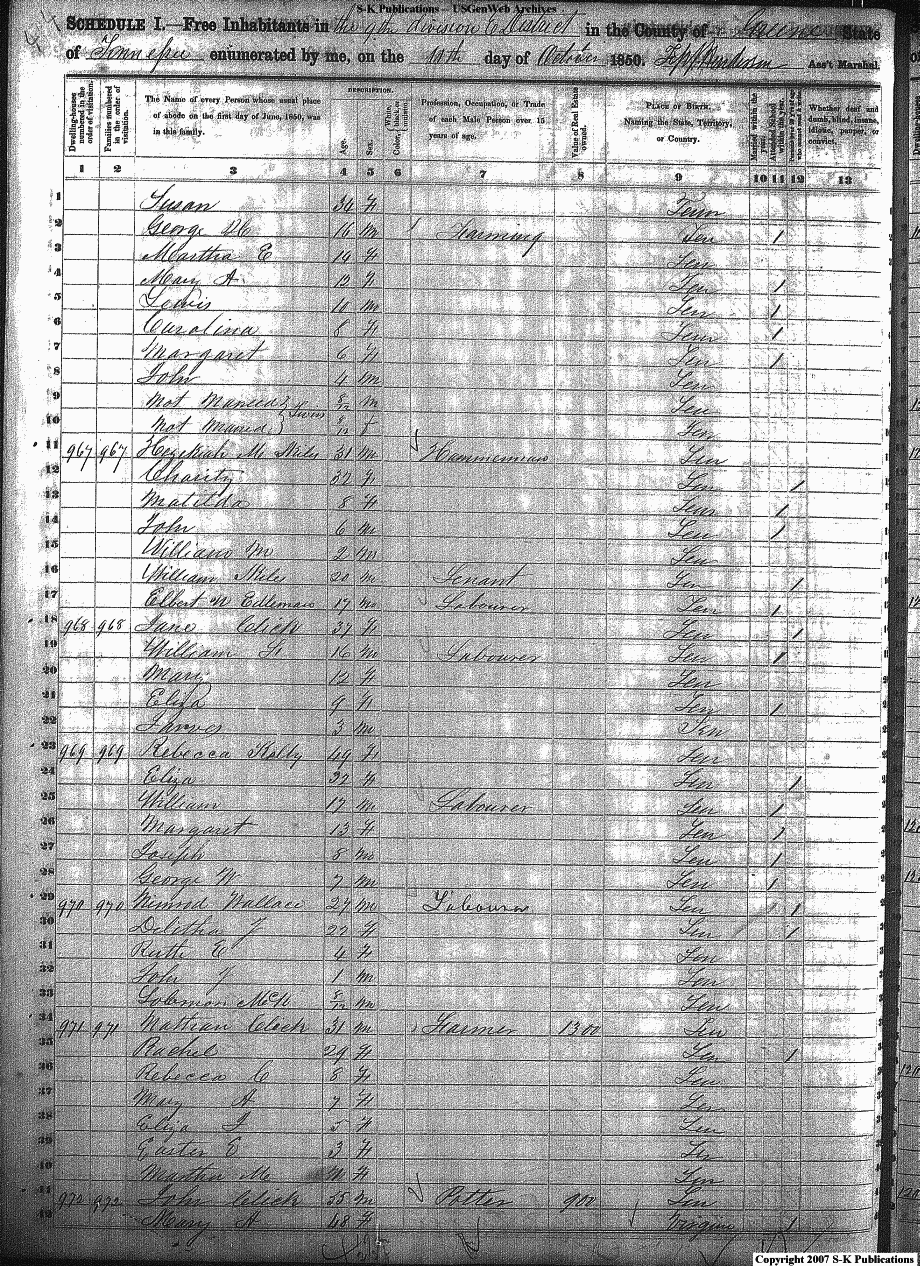 S-K Publications - USGenWeb Archives
SCHEDULE I.—Free Inhabitants in the 9th division E District in the County of Greene State
of Tennessee enumerated by me, on the 10th day of October 1850. Ass't Marshal.
Dwelling-houses numbered in the order of visitation.
Families numbered in the order of visitation.
The Name of every Person whose usual place of abode on the first day of June, 1850, was in this family.
DESCRIPTION.
Age.
Sex.
Color,
Profession, Occupation, or Trade of each Male Person over 15 years of age.
Value of Real Estate owned.
PLACE OF BIRTH. Naming the State, Territory, or Country.
Married within the year.
Whether deaf and dumb, blind, insane, idiotic, pauper, or convict.
1 2 3 4 5 6 7 8 9 10 11 12 13
1 Susan 34 F Tenn
2 George 16 m Farming Ten 1
3 Martha E 14 F Ten
4 Mary A 12 F Ten 1
5 Lewis 10 m Ten 1
6 Carolina 8 F Ten 1
7 Margaret 6 F Ten 1
8 John 4 m Ten
9 Not Named m Ten
10 Not Named Twins f Ten
11 967 967 Hezekiah M Miles 31 m Hammerman Ten
12 Charity 32 F Ten 1
13 Matilda 8 F Ten 1
14 John 6 m Ten 1
15 William M 2 m Ten
16 William Miles 20 m Tenant Ten 1
17 Elbert N 17 m Labourer Ten 1
18 968 968 Jane Click 37 F Ten 1
19 William 16 m Labourer Ten 1
20 Mary 12 F Ten
21 Eliza 9 F Ten 1
22 3 m Ten
23 969 969 Rebecca Kelly 49 F Ten
24 Eliza 22 F Ten 1
25 William 17 m Labourer Ten 1
26 Margaret 13 F Ten 1
27 Joseph 8 m Ten 1
28 George W 7 m Ten 1
29 970 970 Nimrod Wallace 27 m Labourer Ten 1 1
30 Delitha J 22 F Ten 1
31 Ruth E 4 F Ten
32 John J 1 m Ten
33 Solomon McK m Ten
34 971 971 Click 31 m Farmer 1300 Ten
35 Rachel 29 F Ten 1
36 Rebecca C 8 F Ten
37 Mary A 7 F Ten
38 Eliza J 5 F Ten
39 Easter E 3 F Ten
40 Martha M F Ten
41 972 972 John Click 55 m Potter 900 Ten
42 Mary A 48 F Virginia 1
Copyright 2007 S-K Publications